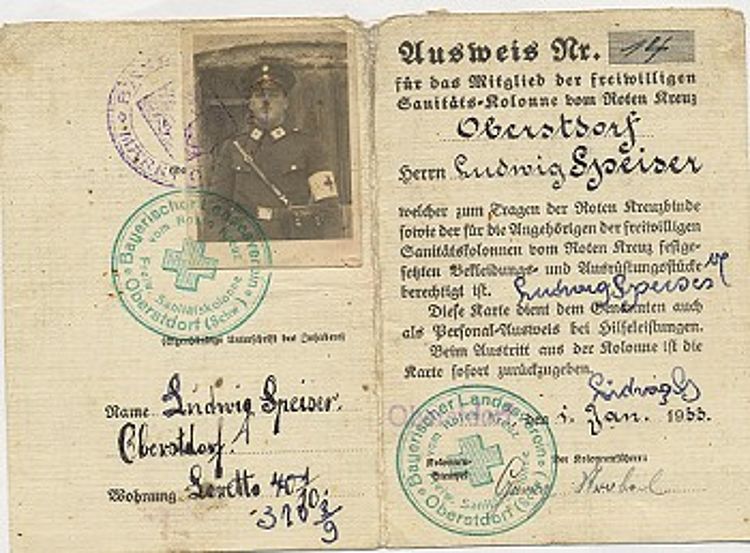 Bayerischer Landesverein
vom Roten Kreuz
Freiw. Sanitätskolonne
Oberstdorf (Schw.)
(Eigenhändige Unterschrift des Inhabers)
Name Ludwig Speiser.
Oberstdorf.
Wohnung Loretto
Ausweis Nr. 14
für das Mitglied der freiwilligen
Sanitäts-Kolonne vom Roten Kreuz
Oberstdorf
Herrn Ludwig Speiser
welcher zum Tragen der Roten Kreuzbinde
sowie der für die Angehörigen der freiwilligen
Sanitätskolonnen vom Roten Kreuz festge-
setzten Bekleidungs- und Ausrüstungsstücke
berechtigt ist. Ludwig Speiser
Diese Karte dient dem Genannten auch
als Personal-Ausweis bei Hilfeleistungen.
Beim Austritt aus der Kolonne ist die
Karte sofort zurückzugeben.
Ludwig
den 1. Jan. 1933.
Bayerischer Landesverein
vom Roten Kreuz
Freiw. Sanitätskolonne
Oberstdorf (Schw.)
Kolonnen-
Stempel
Der Kolonnenführer: